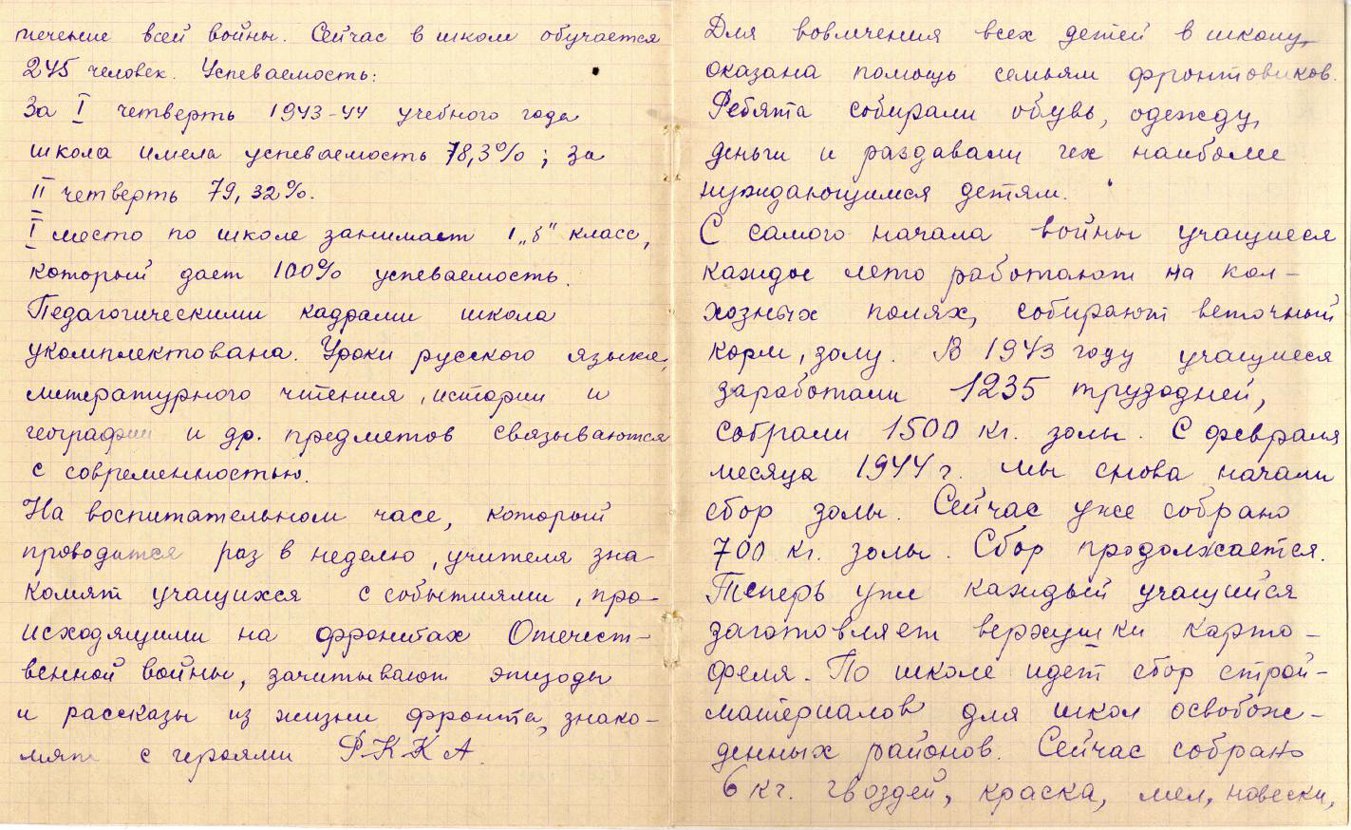 течение всей войны. Сейчас в школе обучается
245 человек. Успеваемость:
За I четверть 1943-44 учебного года
школа имела успеваемость 78,3%; за
II четверть 79,32%.
I место по школе занимает 1 „б" класс,
который дает 100% успеваемость.
Педагогическими кадрами школа
укомплектована. Уроки русского языка,
литературного чтения, истории и
географии и др. предметов связываются
с современностью.
На воспитательном часе, который
проводится раз в неделю, учителя зна-
комят учащихся с событиями, про-
исходящими на фронтах Отечест-
венной войны, зачитывают эпизоды
и рассказы из жизни фронта, знако-
мят с героями РККА.
Для вовлечения всех детей в школу,
оказана помощь семьям фронтовиков.
Ребята собирали обувь, одежду,
деньги и раздавали их наиболее
нуждающимся детям.
С самого начала войны учащиеся
каждое лето работают на кол-
хозных полях, собирают веточный
корм, золу. В 1943 году учащиеся
заработали 1235 трудодней,
собрали 1500 кг. золы. С февраля
месяца 1944 г. мы снова начали
сбор золы. Сейчас уже собрано
700 кг. золы. Сбор продолжается.
Теперь уже каждый учащийся
заготовляет верхушки карто-
феля. По школе идет сбор строй-
материалов для школ освобож-
денных районов. Сейчас собрано
6 кг. гвоздей, краска, мел, новески,